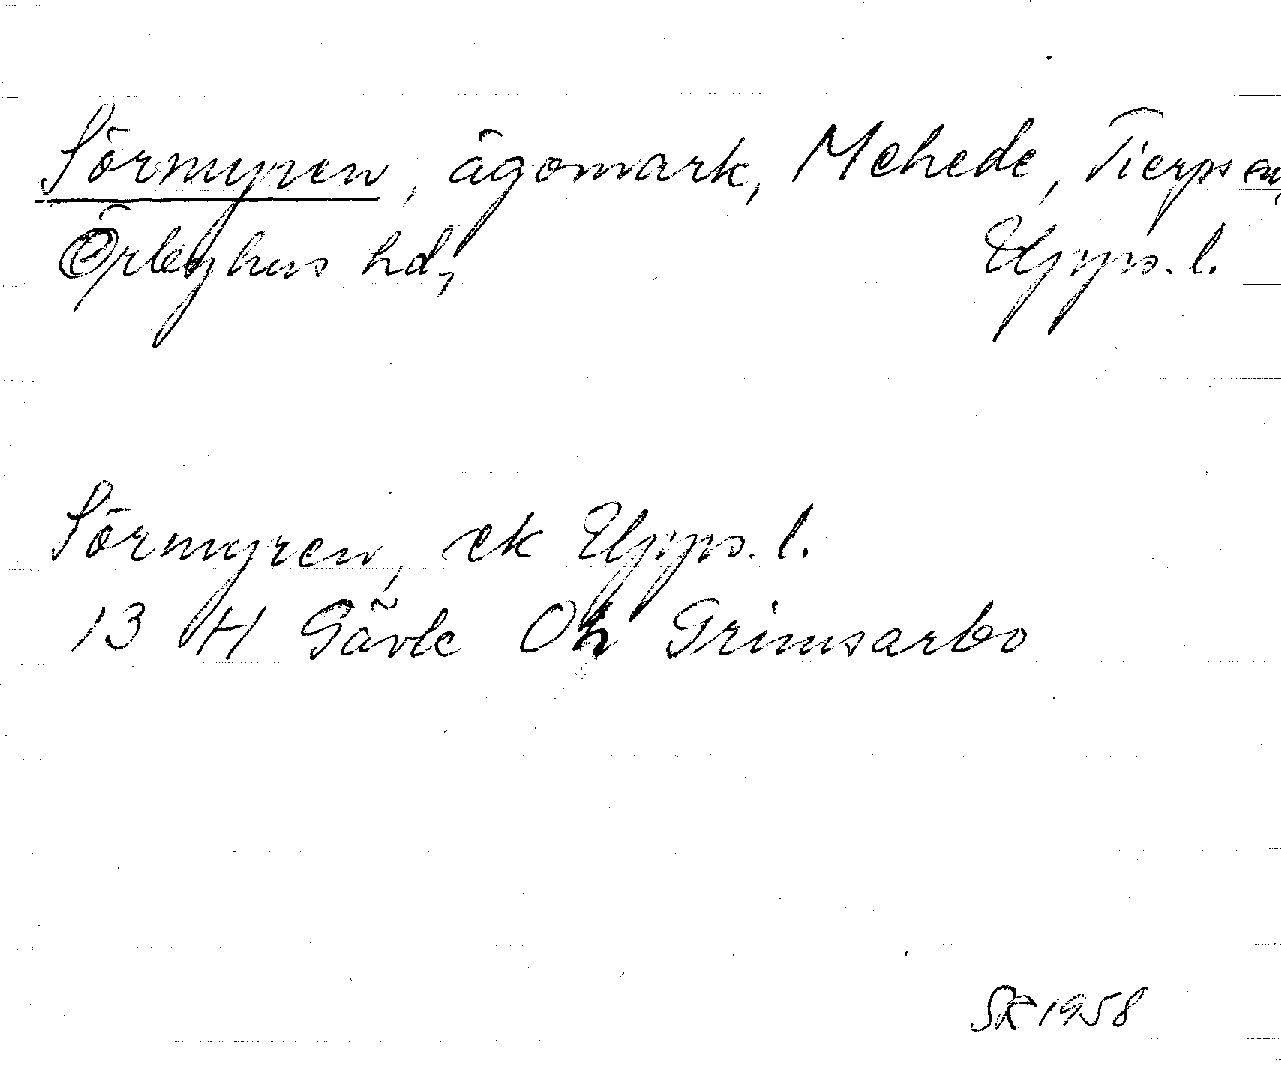 Sörmyren, ägomark, Mehede, Tierps sn,
Örbyhus hd, Upps. l.
Sörmyren, ek Upps. l.
13 H Gävle Grimsarbo
SR 1958